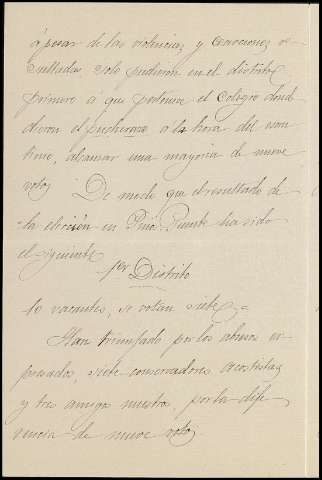 á pesar de las violencias y coacciones re-
señadas, solo pudieron en el distrito
primero á que pertenece el Colegio dond
dieron el pucherazo á la hora del escru
tinio, alcanzar una mayoria de nueve
votos. De modo que el resultado de
la elección en Puente ha sido
el siguiente
1er Distrito
10 vacantes, se votan siete =
Han triunfado por los abusos ex
presados, siete conservadores
y tres amigos nuestros, por la dife
rencia de nueve votos